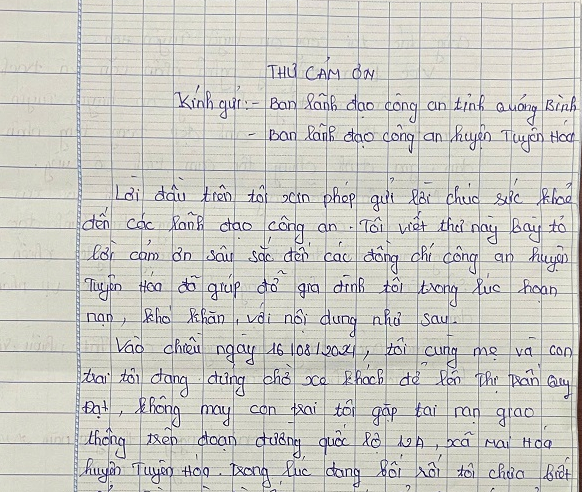 THƯ CẢM ƠN
Kính gửi: - Ban lãnh đạo công an tỉnh Quảng Bình
- Ban lãnh đạo công an huyện Tuyên Hoá
Lời đầu tiên tôi xin phép gửi lời chúc sức khoẻ
đến các lãnh đạo công an. Tôi viết thư này bày tỏ
lời cảm ơn sâu sắc đến các đồng chí công an huyện
Tuyên Hóa đã giúp đỡ gia đình tôi trong lúc hoạn
nạn, khó khăn, với nội dung như sau.
Vào chiều ngày 16/08/2024, tôi cùng mẹ và con
trai tôi đang đứng chờ xe khách để lên Thị Trấn Quy
Đạt, không may con trai tôi gặp tai nạn giao
thông trên đoạn đường quốc lộ 12A, xã Mai Hóa
huyện Tuyên Hóa. Trong lúc đang bối rối tôi chưa biết